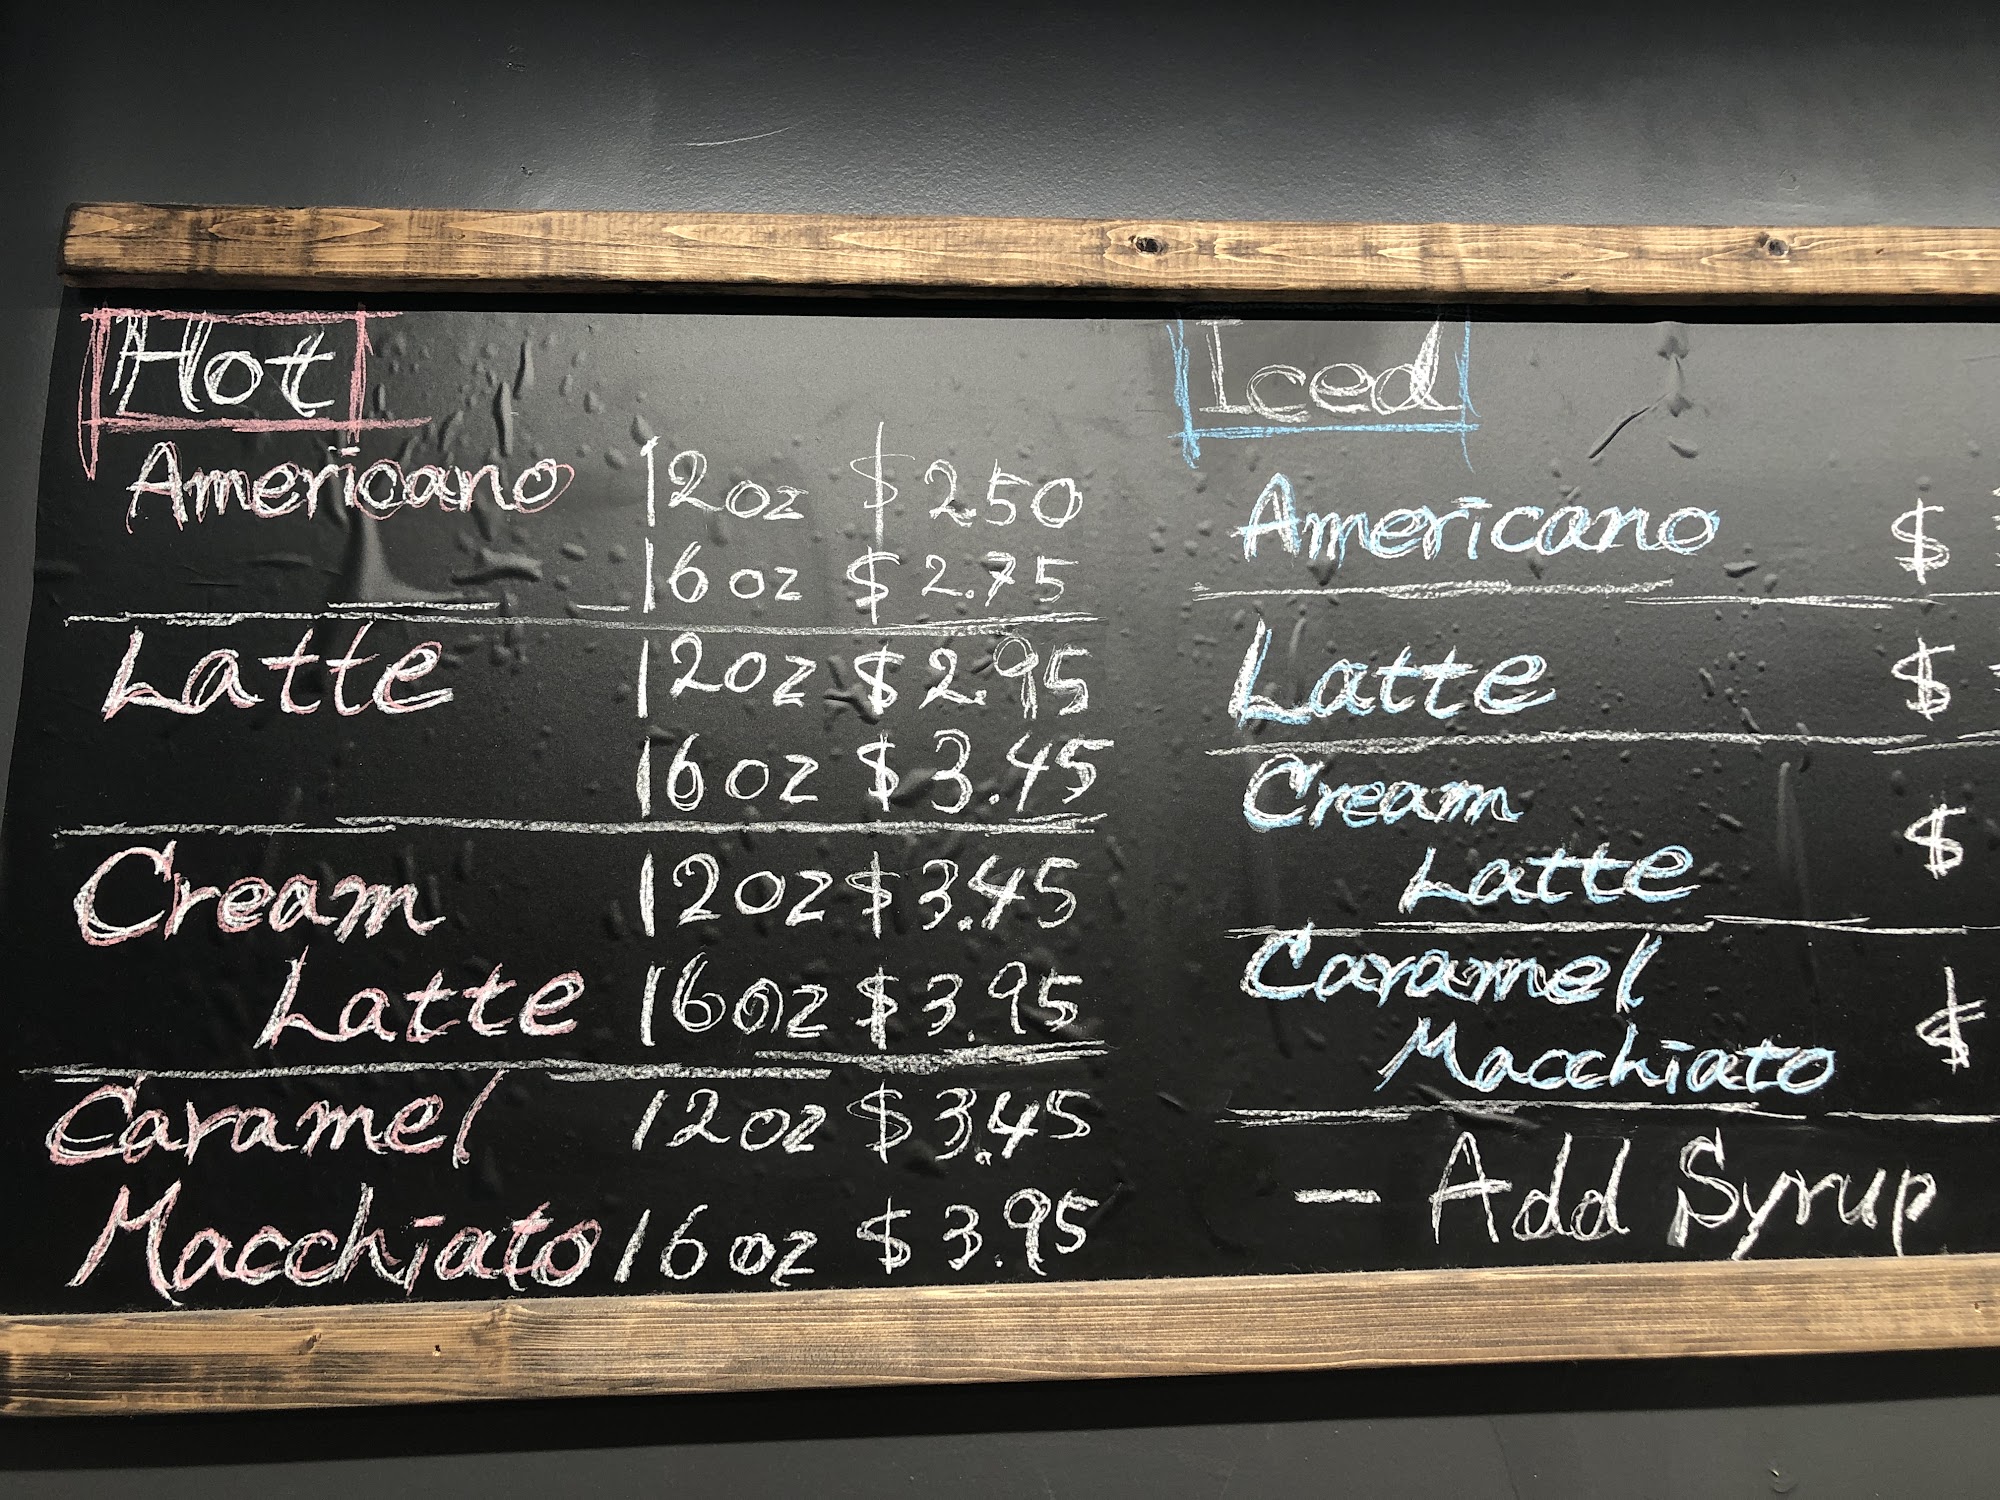 Hot
Americano 12oz $2.50
16oz $2.75
Latte 12oz $2.95
16oz $3.45
Cream 12oz $3.45
Latte 16oz $3.95
Caramel 12oz $3.45
Macchiato 16oz $3.95
Iced
Americano $
Latte $
Cream
Latte $
Caramel
Macchiato $
— Add Syrup